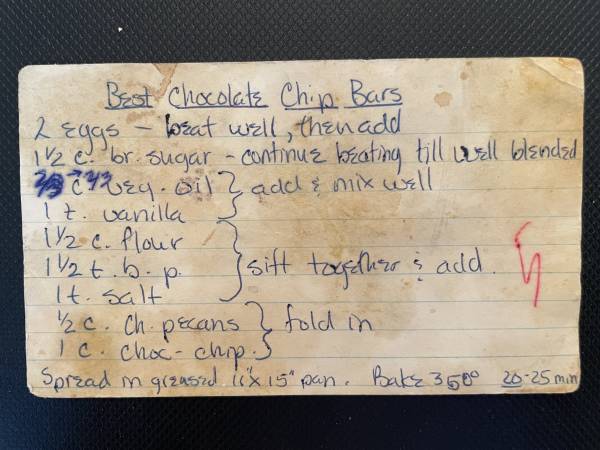 Best Chocolate Chip Bars
2 eggs - beat well, then add
1 1/2 c. br. sugar - continue beating till well blended
c veg. oil } add & mix well
1 t. vanilla
1 1/2 c. flour
1 1/2 t. b. p. } sift together & add.
1 t. salt
1/2 c. ch. pecans } fold in
1 c. choc-chip.
Spread in greased 11"x 15" pan. Bake 350° 20-25 min